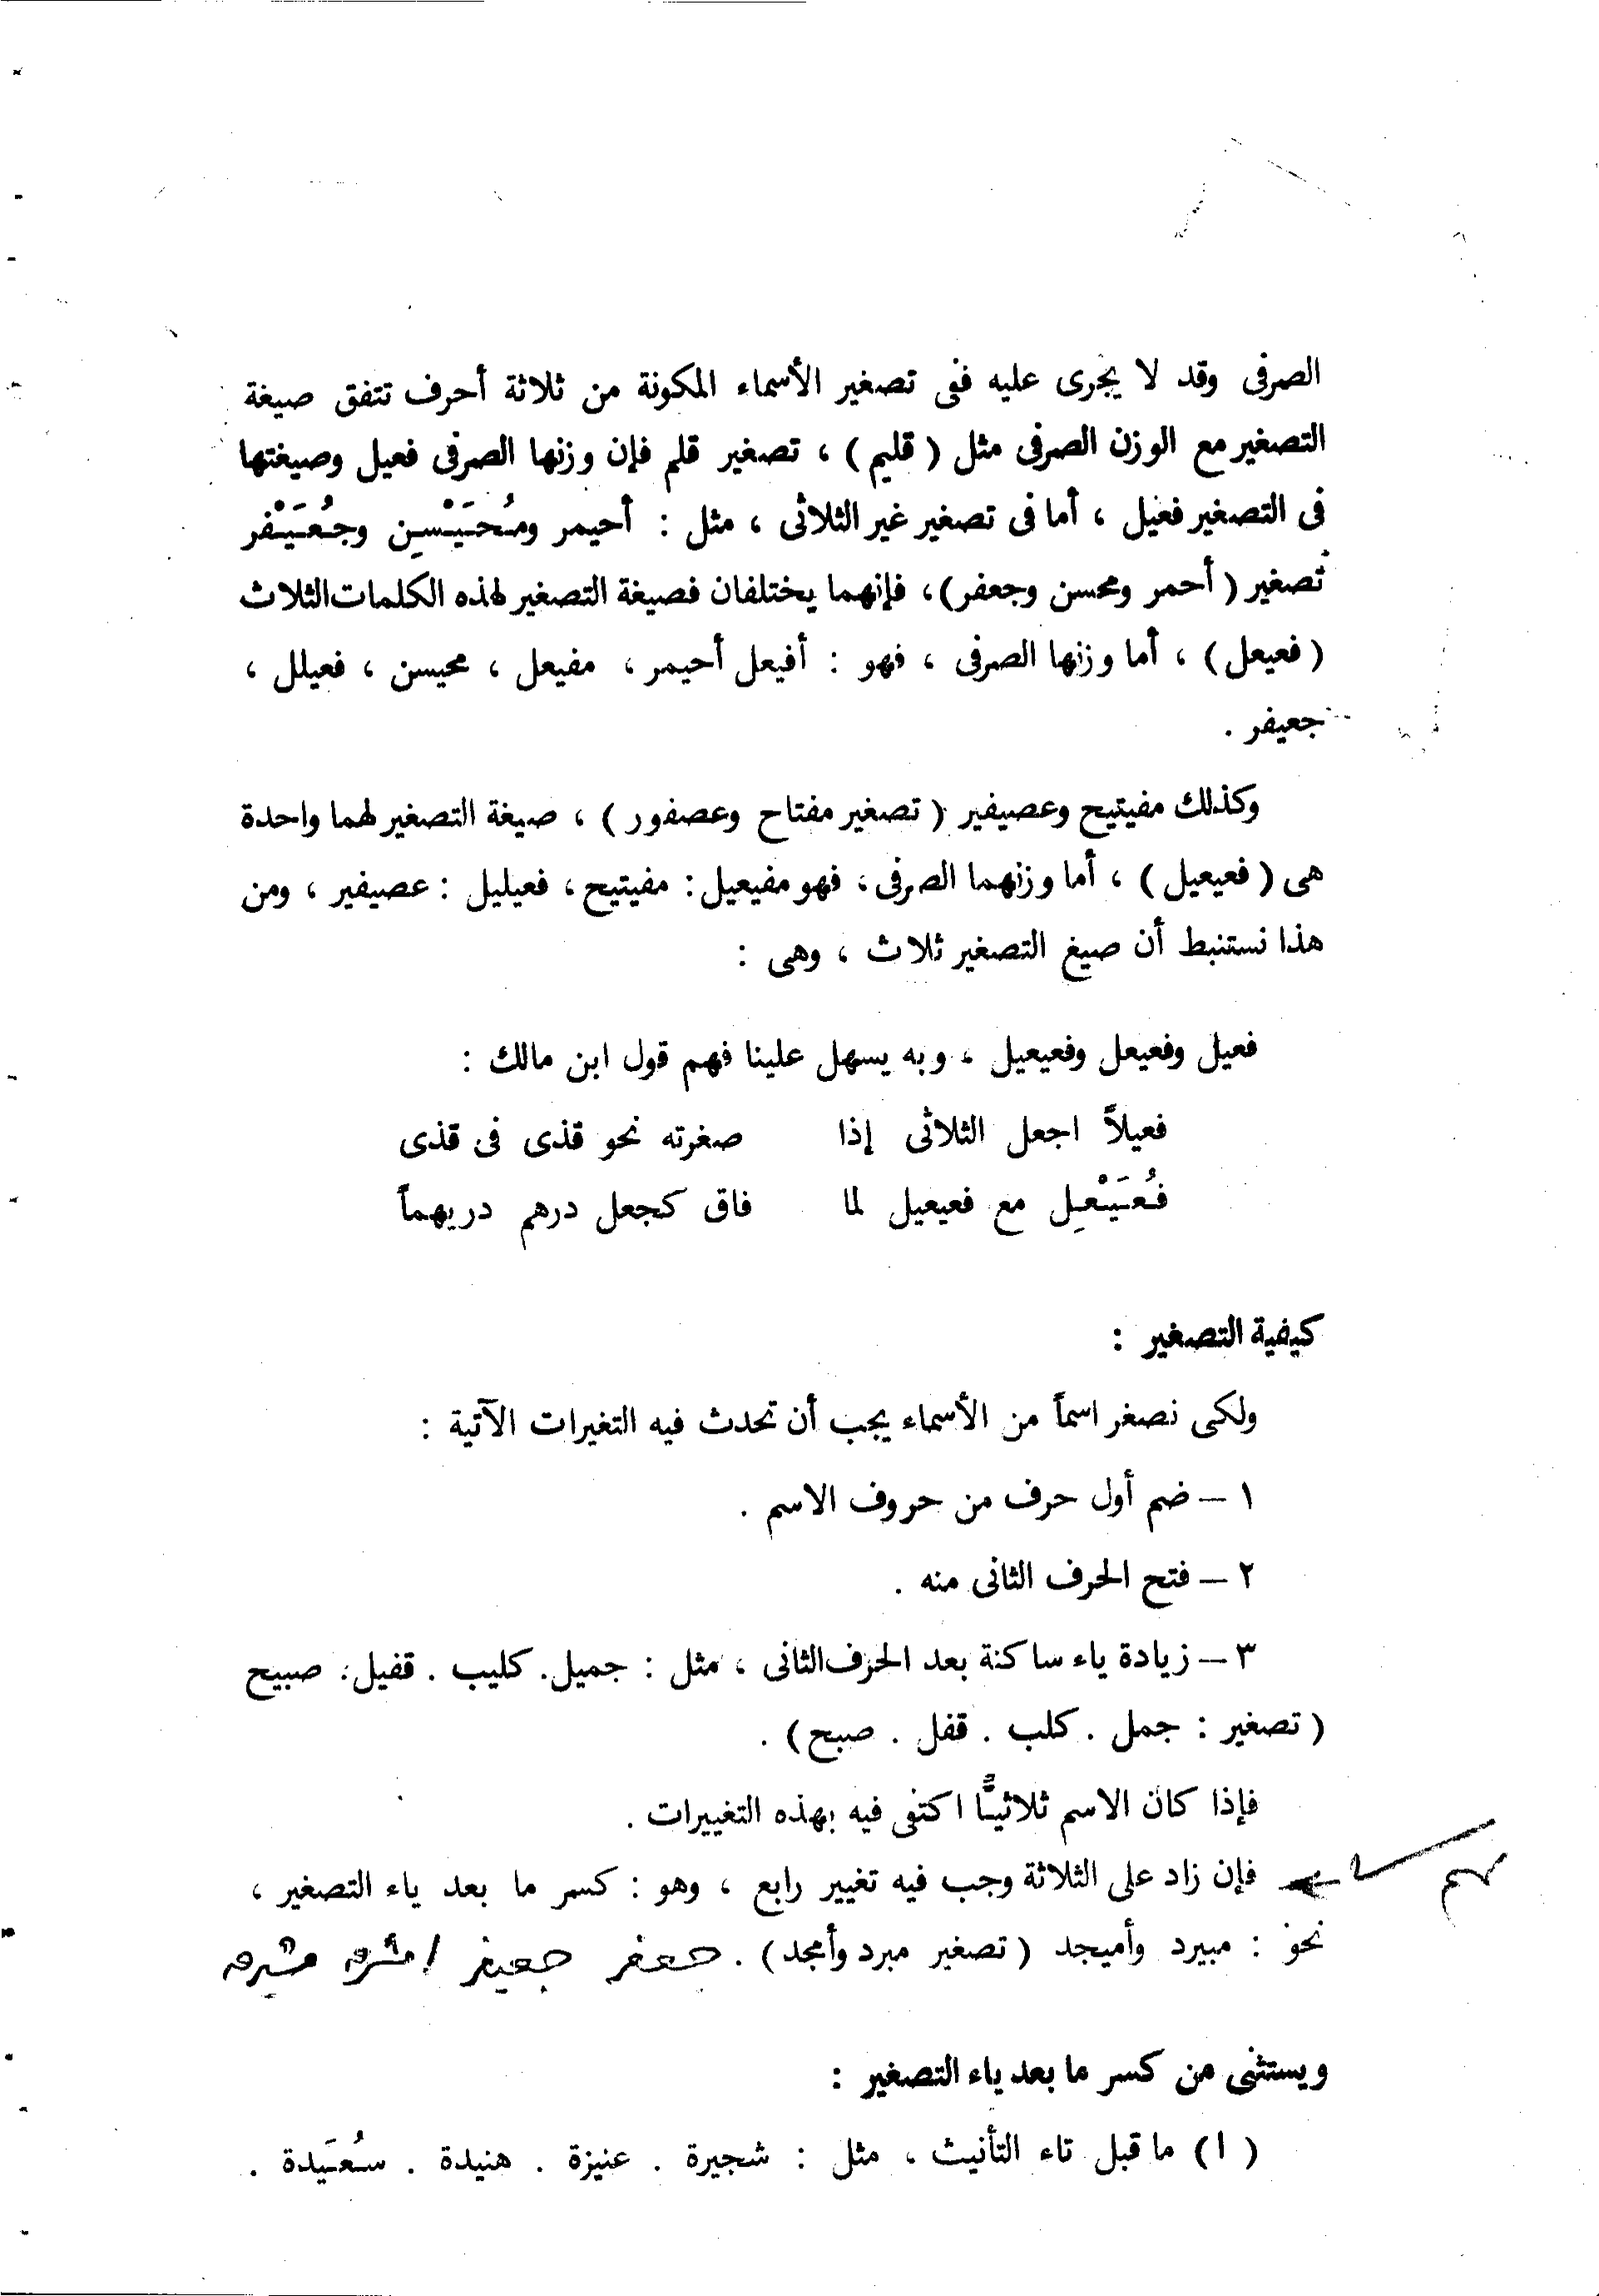 الصرفى وقد لا يجرى عليه ففى تصغير الأسماء المكونة من ثلاثة أحرف تتفق صيغة
التصغير مع الوزن الصرفى مثل ( قليم ) ، تصغير قلم فإن وزنها الصرفى فعيل وصيغتها
فى التصغير فعيل ، أما فى تصغير غير الثلاثى ، مثل : أحيمر ومُحَيْسِن وجُعَيْفر
تصغير ( أحمر ومحسن وجعفر ) ، فإنهما يختلفان فصيغة التصغير لهذه الكلمات الثلاث
( فعيعل ) ، أما وزنها الصرفى ، فهو : أفيعل أحيمر ، مفيعل ، محيسن ، فعيلل ،
جعيفر .
وكذلك مفيتيح وعصيفير ( تصغير مفتاح وعصفور ) ، صيغة التصغير لهما واحدة
هى ( فعيعيل ) ، أما وزنهما الصرفى ، فهو مفيعيل : مفيتيح ، فعيليل : عصيفير ، ومن
هذا نستنبط أن صيغ التصغير ثلاث ، وهى :
فعيل وفعيعل وفعيعيل ، وبه يسهل علينا فهم قول ابن مالك :
فعيلاً اجعل الثلاثى إذا صغرته نحو قذى فى قذى
فُعَيْعِل مع فعيعيل لما فاق كجعل درهم دريهماً
كيفية التصغير :
ولكى نصغر اسماً من الأسماء يجب أن تحدث فيه التغيرات الآتية :
١ – ضم أول حرف من حروف الاسم .
٢ – فتح الحرف الثانى منه .
٣ – زيادة ياء ساكنة بعد الحرف الثانى ، مثل : جميل . كليب . قفيل . صبيح
( تصغير : جمل . كلب . قفل . صبح ) .
فإذا كان الاسم ثلاثيًّا اكتفى فيه بهذه التغييرات .
مهم
فإن زاد على الثلاثة وجب فيه تغيير رابع ، وهو : كسر ما بعد ياء التصغير ،
نحو : مبيرد وأميجد ( تصغير مبرد وأمجد ) . جعفر جعيفر /
ويستثنى من كسر ما بعد ياء التصغير :
( ا ) ما قبل تاء التأنيث ، مثل : شجيرة . عنيزة . هنيدة . سُعَيدة .